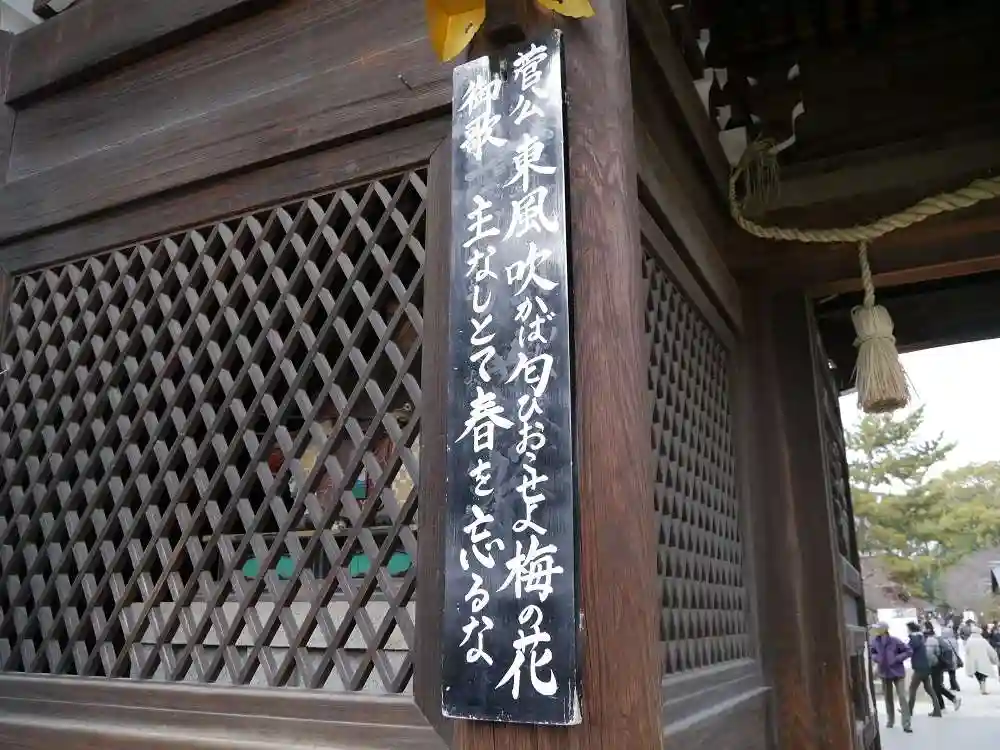 菅公 東風吹かば匂ひおこせよ梅の花
御歌 主なしとて春を忘るな